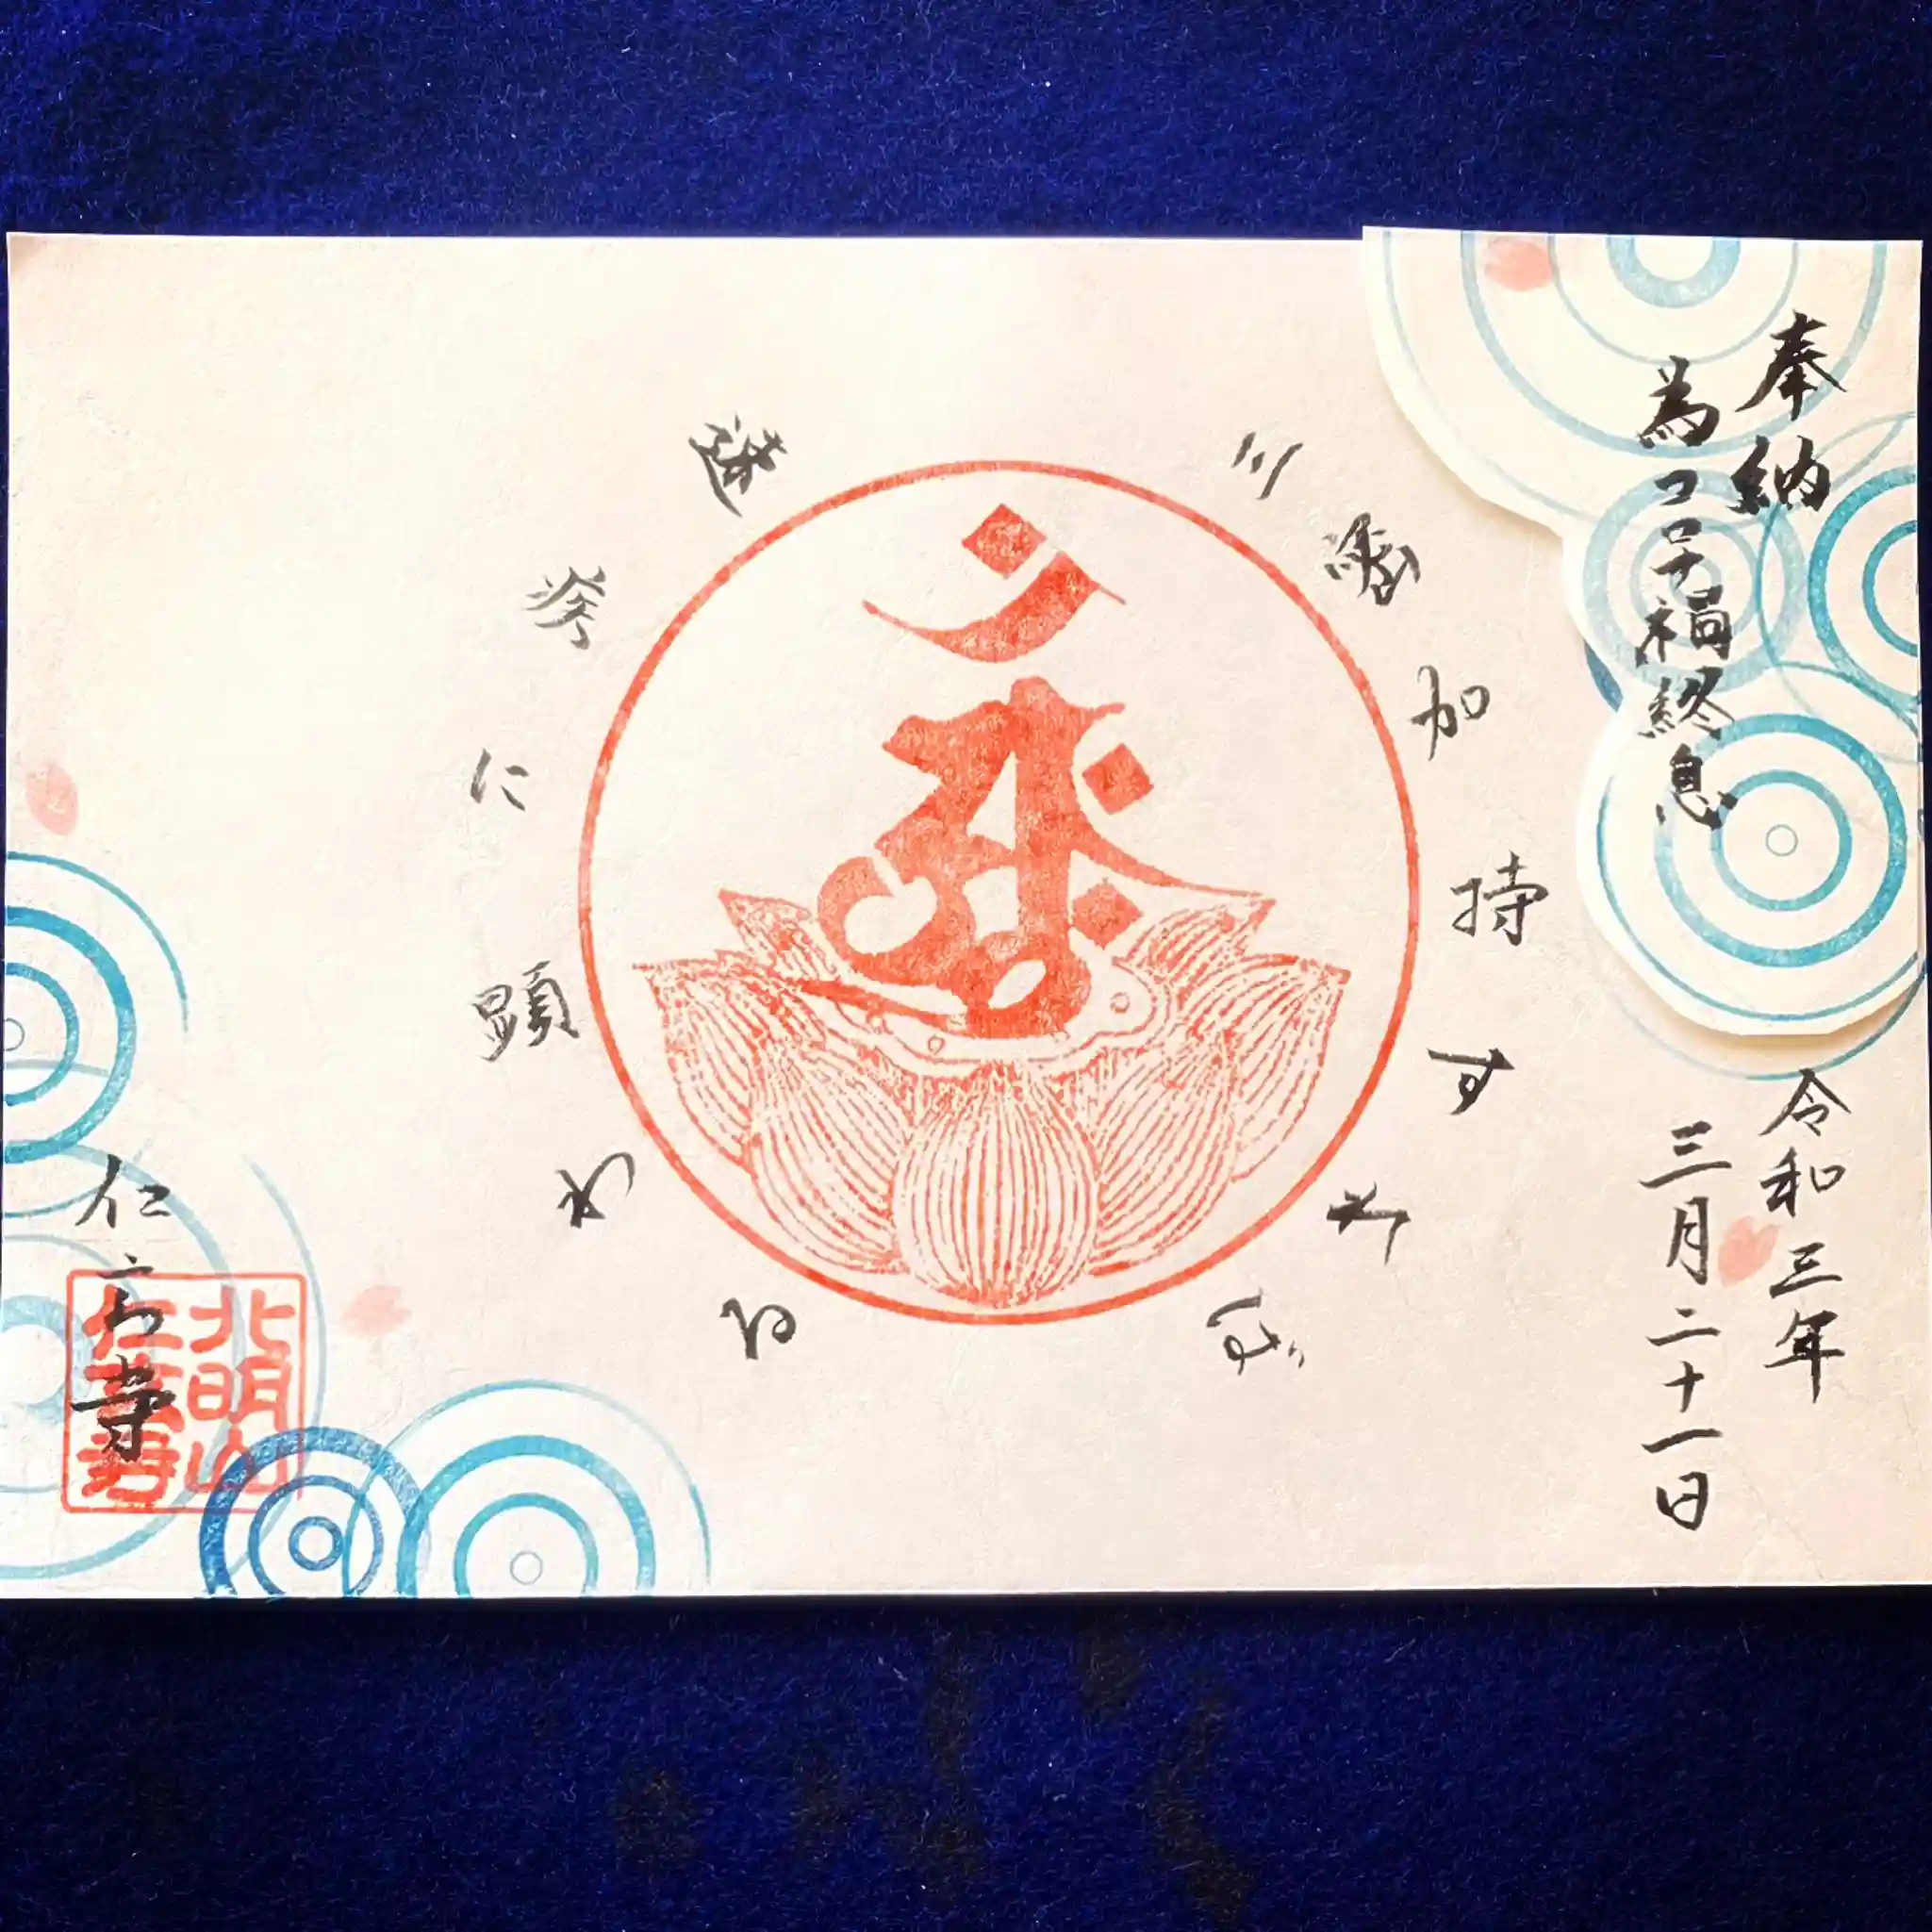 奉納
為コロナ禍終息
令和三年
三月二十一日
三密加持すれば速疾に顕わる
仁 寺
北明山